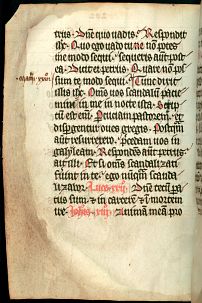 trus. Dñe quo vadis. Respondit
ihc. Quo ego vado tu nõ potes
me modo sequi. sequeris aut post
ea. Dicit ei petrus. Quare nõ pos
sum te modo sequi. Tunc dixit
illis ihc. Oms vos scandalũ pacie
mini in me in nocte ista. Scriptũ
est eni. Percutiam pastorem. et
dispgentur oves gregis. Postq̃
aut resurrexero. Precedam vos in
galyleam. Respondes aut petrus.
ait illi. Et si oms scandalizati
fuerint in te. ego nũq̃m scanda
lizabor. Luce xxij. Dñe tecũ pa
ratus sum. et in carcerẽ et ĩ mortem
ire. Johis xiij. Animam meã pro